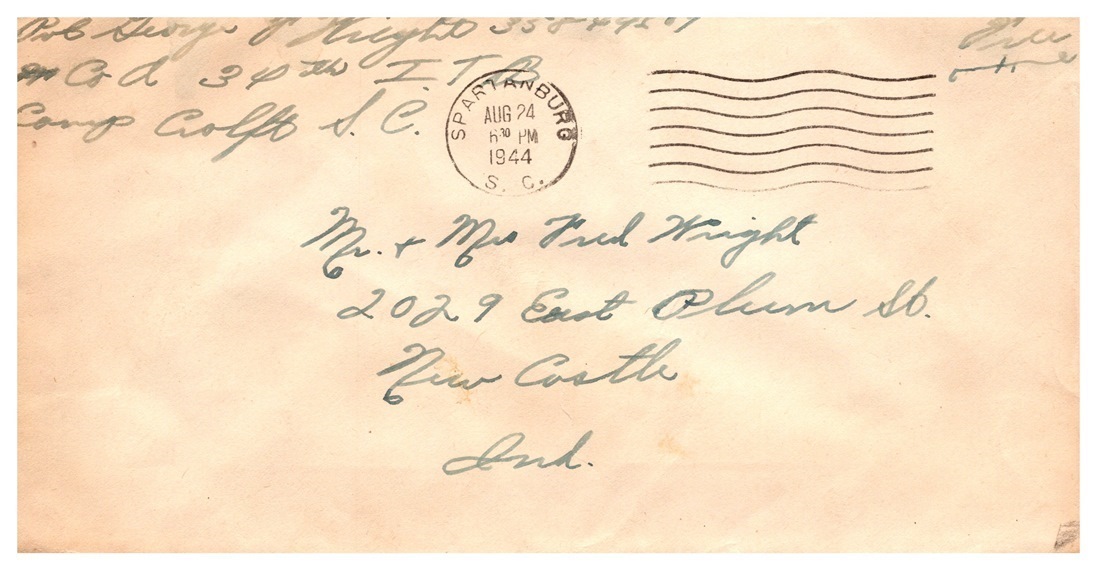 Pvt George F Wright
Free
Co A 34th I.T.B
Camp Crolft S. C.
SPARTANBURG
AUG 24
6 30 PM
1944
S. C.
Mr. + Mrs Fred Wright
2029 East Plum St.
New Castle
Ind.